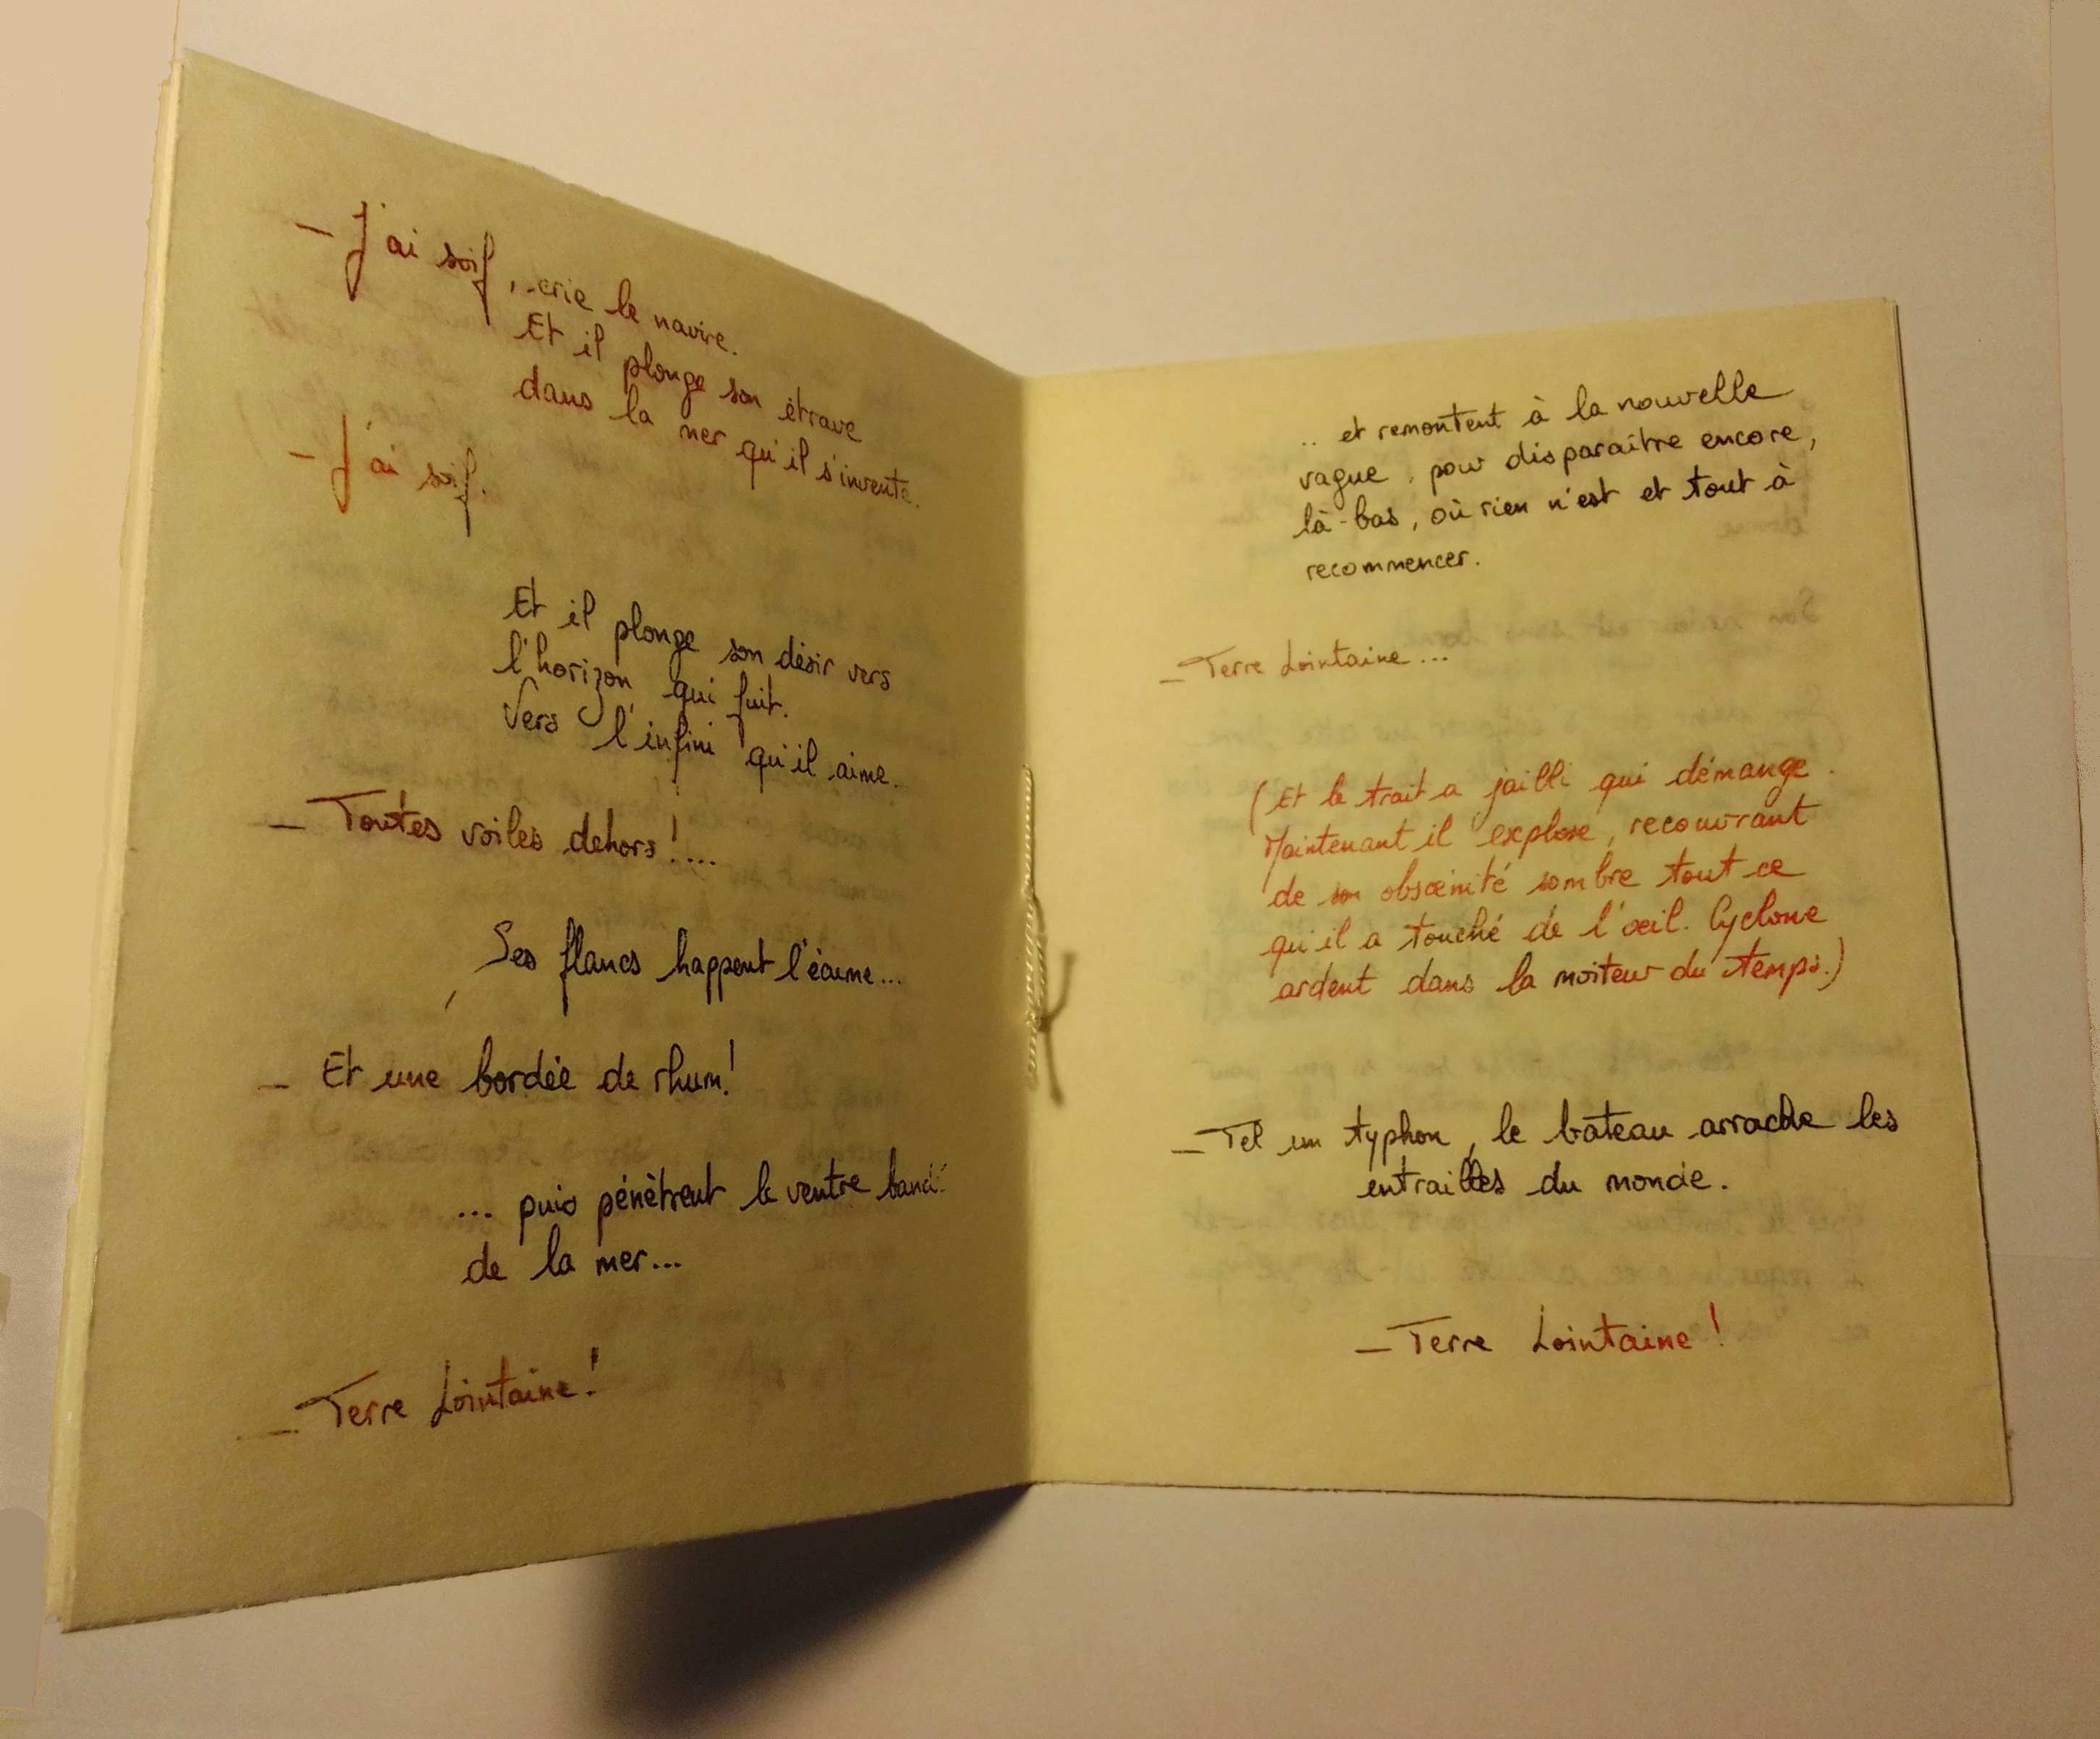 — J'ai soif, crie le navire.
Et il plonge son étrave
dans la mer qu'il s'invente.
— J'ai soif.
Et il plonge son désir vers
l'horizon qui fuit.
Vers l'infini qu'il aime.
— Toutes voiles dehors !...
Ses flancs happent l'écume...
— Et une bordée de rhum !
... puis pénètrent le ventre
de la mer...
— Terre Lointaine !
.. et remontent à la nouvelle
vague, pour disparaître encore,
là-bas, où rien n'est et tout à
recommencer.
— Terre Lointaine...
(Et le trait a jailli qui démange.
Maintenant il explose, recouvrant
de son obscénité sombre tout ce
qu'il a touché de l'œil. Cyclone
ardent dans la moiteur du temps.)
— Tel un typhon, le bateau arrache les
entrailles du monde.
— Terre Lointaine !